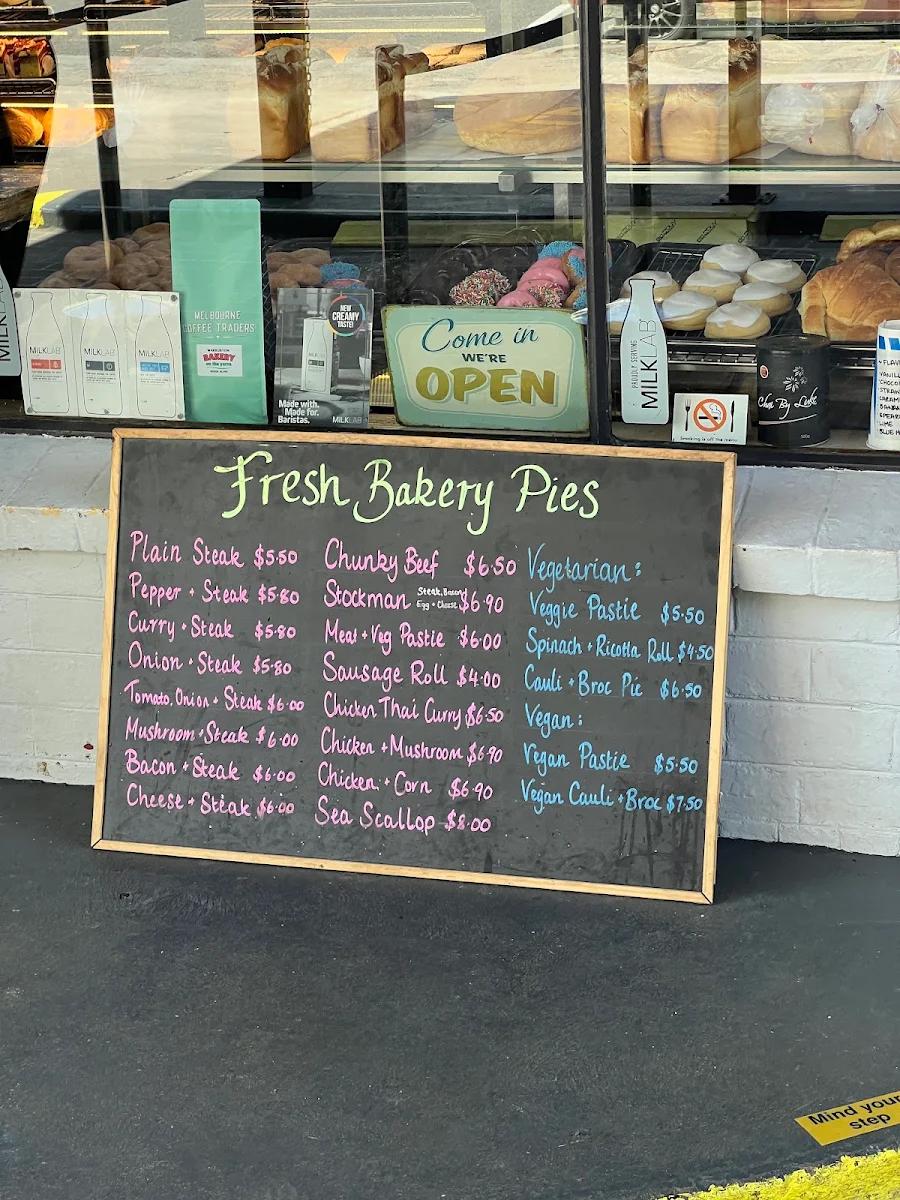 MILKLAB
MILKLAB
MILKLAB
MILKLAB
MELBOURNE
COFFEE TRADERS
BAKERY
NEW
CREAMY
TASTE!
Made with.
Made for.
Baristas.
MILKLAB
Come in
WE'RE
OPEN
PROUDLY SERVING
MILKLAB
Smoking is off the menu
Fresh Bakery Pies
Plain Steak $5.50
Pepper + Steak $5.80
Curry + Steak $5.80
Onion + Steak $5.80
Tomato, Onion + Steak $6.00
Mushroom + Steak $6.00
Bacon + Steak $6.00
Cheese + Steak $6.00
Chunky Beef $6.50
Stockman Steak, Bacon Egg + Cheese $6.90
Meat + Veg Pastie $6.00
Sausage Roll $4.00
Chicken Thai Curry $6.50
Chicken + Mushroom $6.90
Chicken + Corn $6.90
Sea Scallop $8.00
Vegetarian:
Veggie Pastie $5.50
Spinach + Ricotta Roll $4.50
Cauli + Broc Pie $6.50
Vegan:
Vegan Pastie $5.50
Vegan Cauli + Broc $7.50
Mind your
step